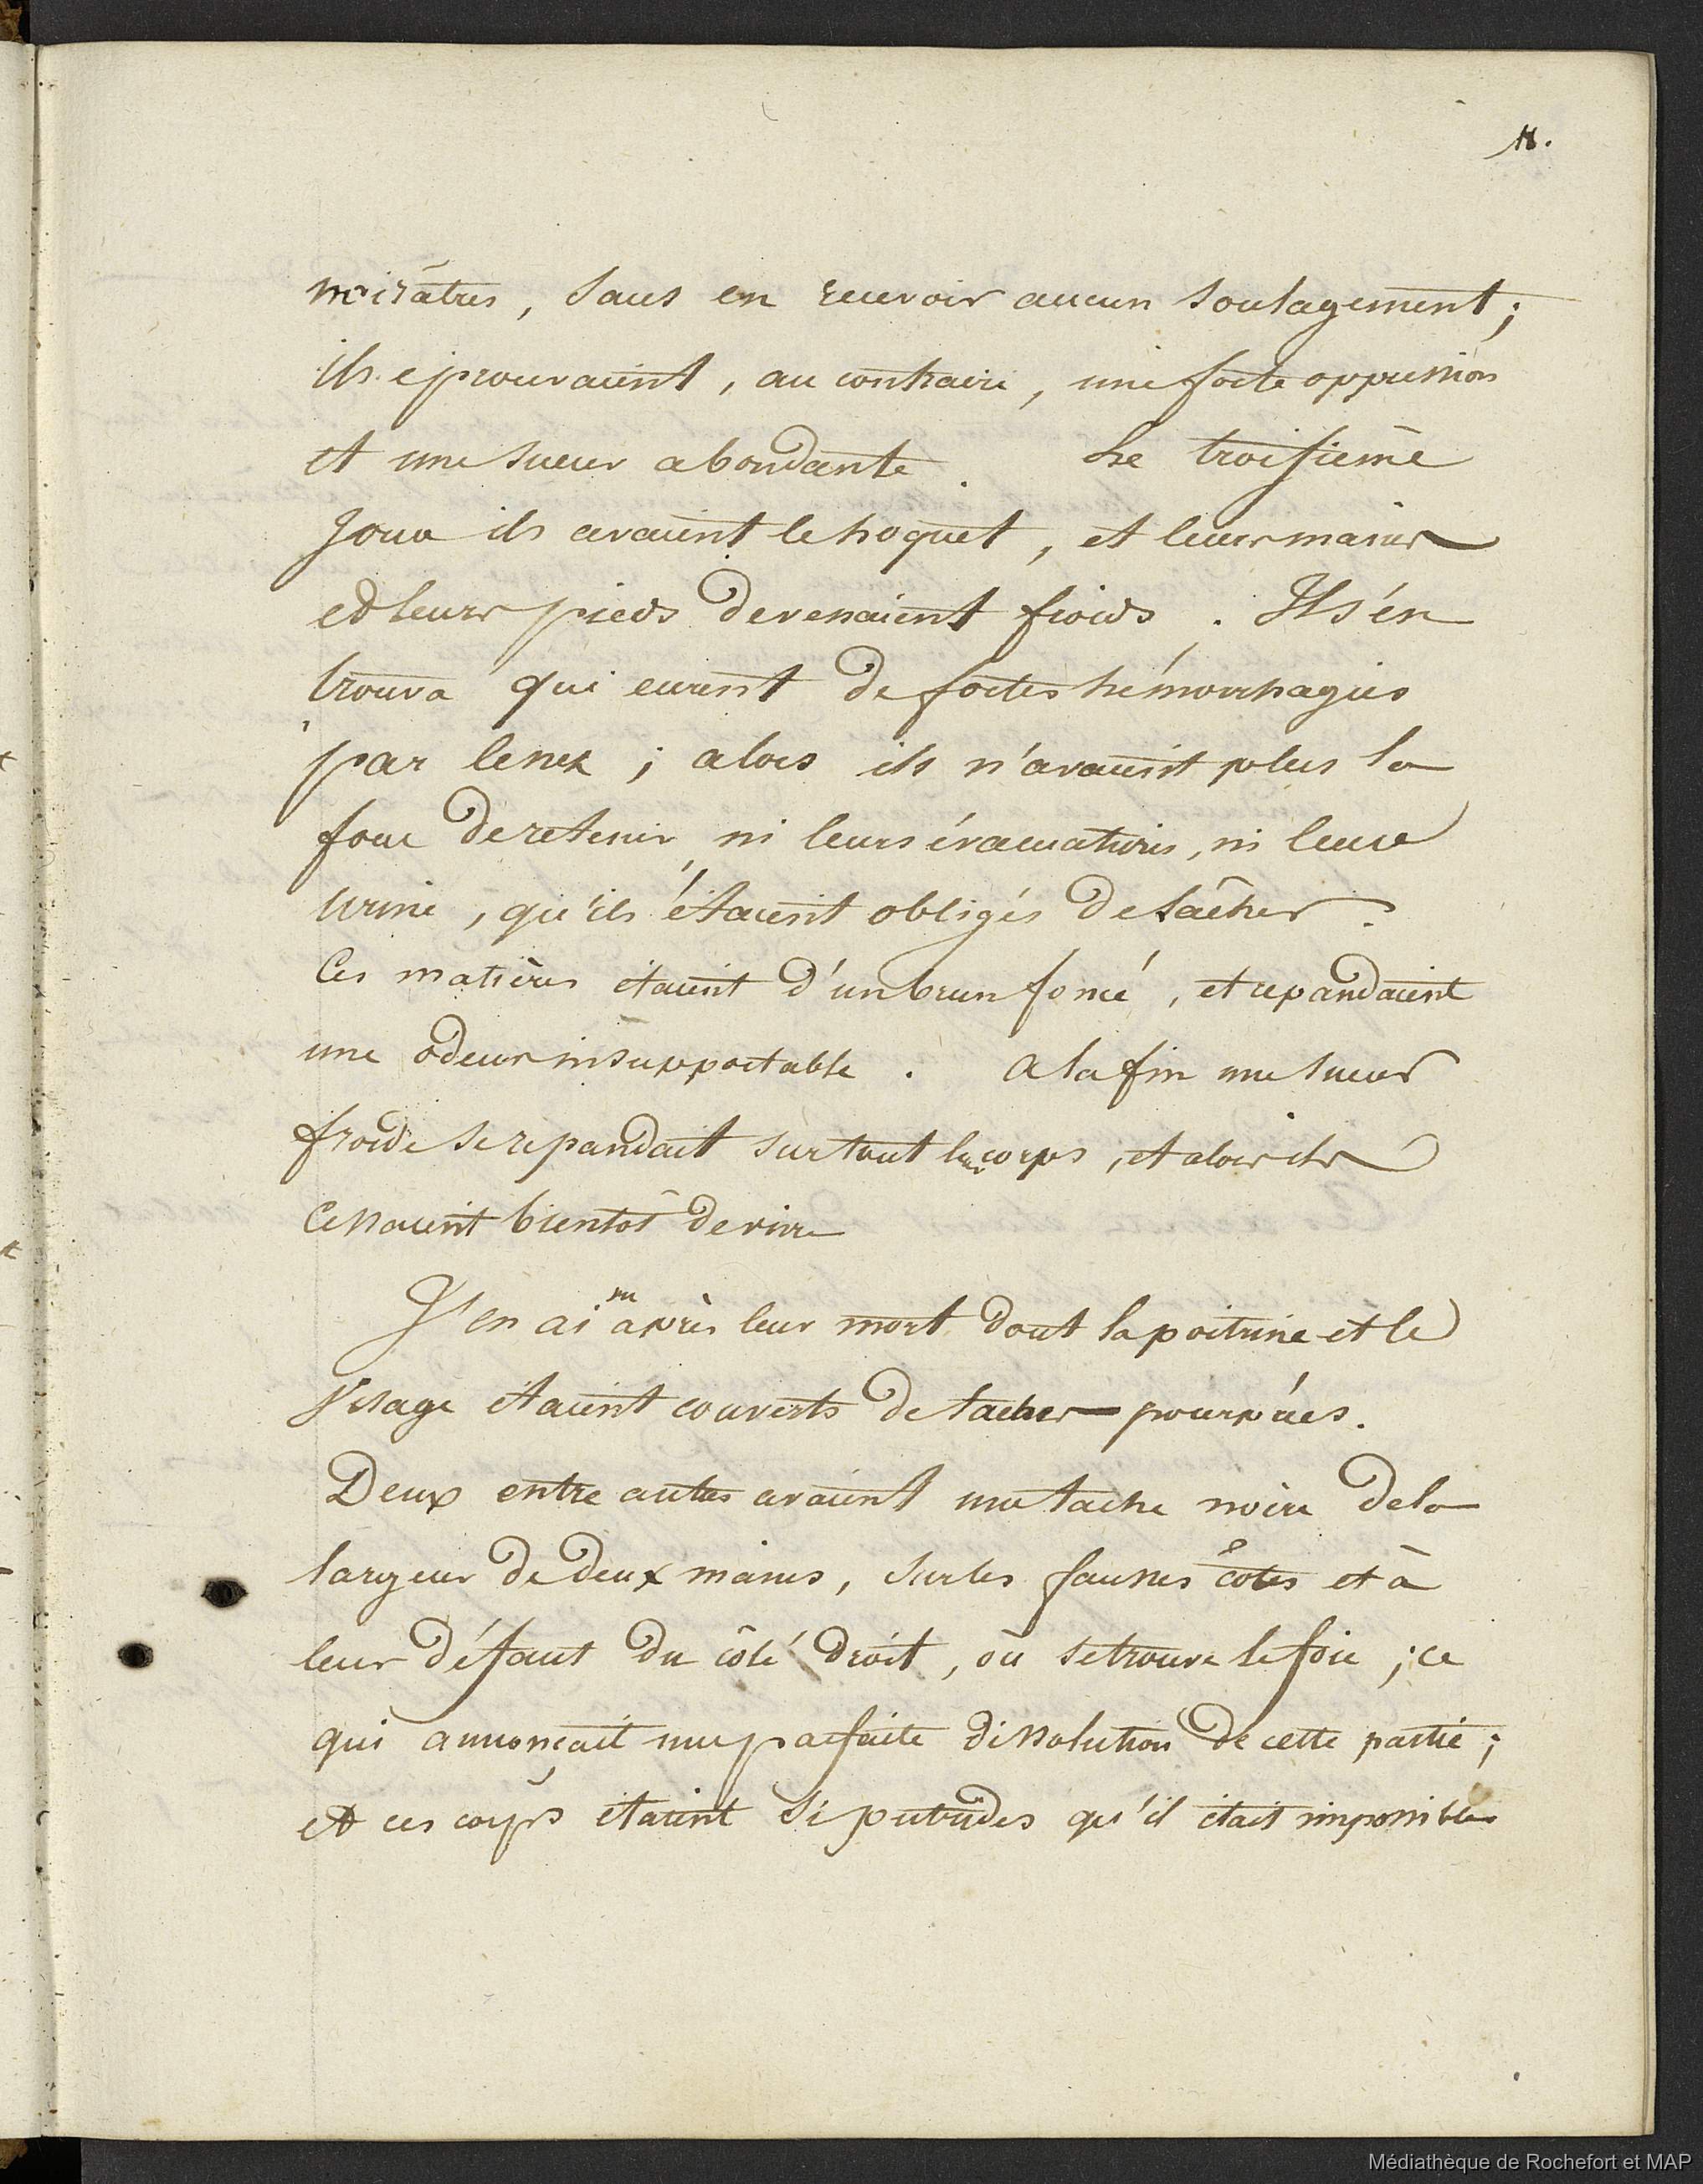 11.
noirâtres, sans en recevoir aucun soulagement;
ils eprouvaient, au contraire, une forte oppression
et une sueur abondante. Le troisième
Jour ils avaient le hoquet, et leurs mains
et leurs pieds devenaient froids. Il s'en
trouva qui eurent de fortes hémorrhagies
par le nez; alors ils n'avaient plus la
force de retenir, ni leurs évacuations, ni leur
urine, qu'ils étaient obligés de lâcher.
Ces matières étaient d'un brun foncé, et repandaient
une odeur insupportable. A la fin une sueur
froide se repandait sur tout leur corps, et alors ils
cessaient bientôt de vivre
J'en ai vu après leur mort dont la poitrine et le
Visage étaient couverts de taches pourprées.
Deux entre autres avaient une tache noire de la
largeur de deux mains, sur les fausses côtes et à
leur défaut du côté droit, où se trouve le foie; ce
qui annonçait une parfaite dissolution de cette partie;
et ces corps étaient si putrides qu'il était impossible
Médiathèque de Rochefort et MAP